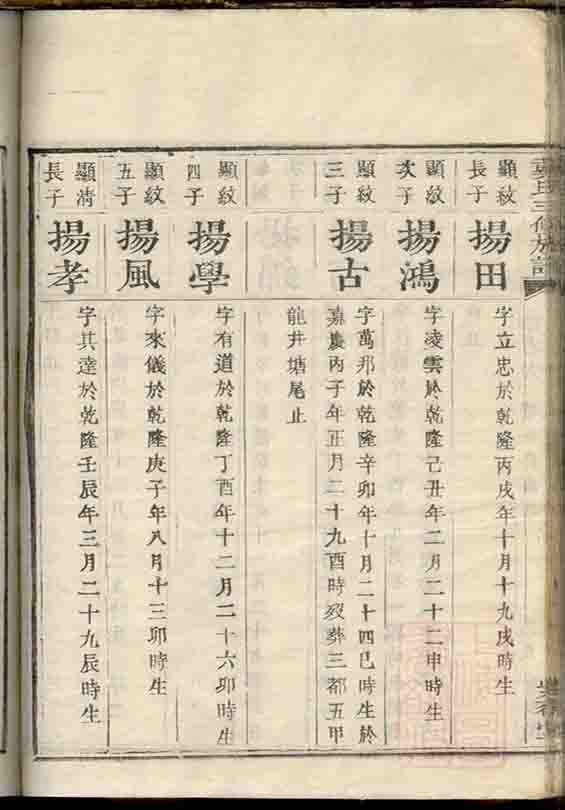 氏三修族譜
顯紋長子
揚田
字立忠於乾隆丙戌年十月十九戌時生
顯紋次子
揚鴻
字凌雲於乾隆己丑年二月二十二申時生
顯紋三子
揚古
字萬邦於乾隆辛卯年十月二十四巳時生於
嘉慶丙子年正月二十九酉時歿葬三都五甲
龍井塘尾止
顯紋四子
揚學
字有道於乾隆丁酉年十二月二十六卯時生
顯紋五子
揚風
字來儀於乾隆庚子年八月十三卯時生
顯清長子
揚孝
字其達於乾隆壬辰年三月二十九辰時生